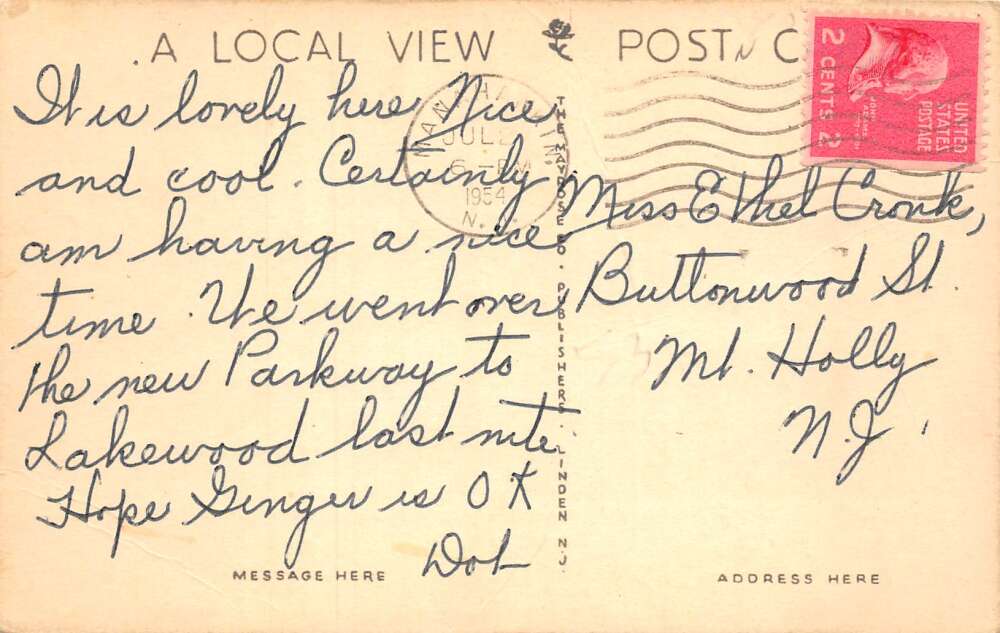 A LOCAL VIEW POST C
It is lovely here Nice
and cool. Certainly
am having a nice
time. We went over
the new Parkway to
Lakewood last nite
Hope Ginger is OK
Dot
MESSAGE HERE
THE MAYROSE CO. PUBLISHERS. LINDEN N.J.
JUL
6 - PM
1954
N. J.
UNITED
STATES
POSTAGE
2 CENTS 2
Miss Ethel Cronk,
Buttonwood St.
Mt. Holly
N.J.
ADDRESS HERE